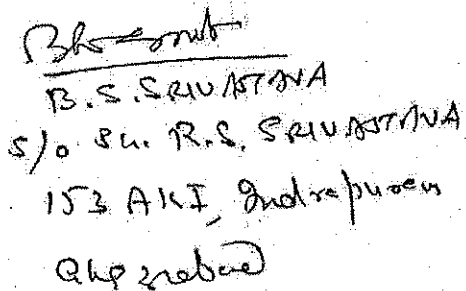 B.S. SRIVASTAVA
S/o Sh. R.S. SRIVASTAVA
153 AKI, Indrapuram
Ghaziabad